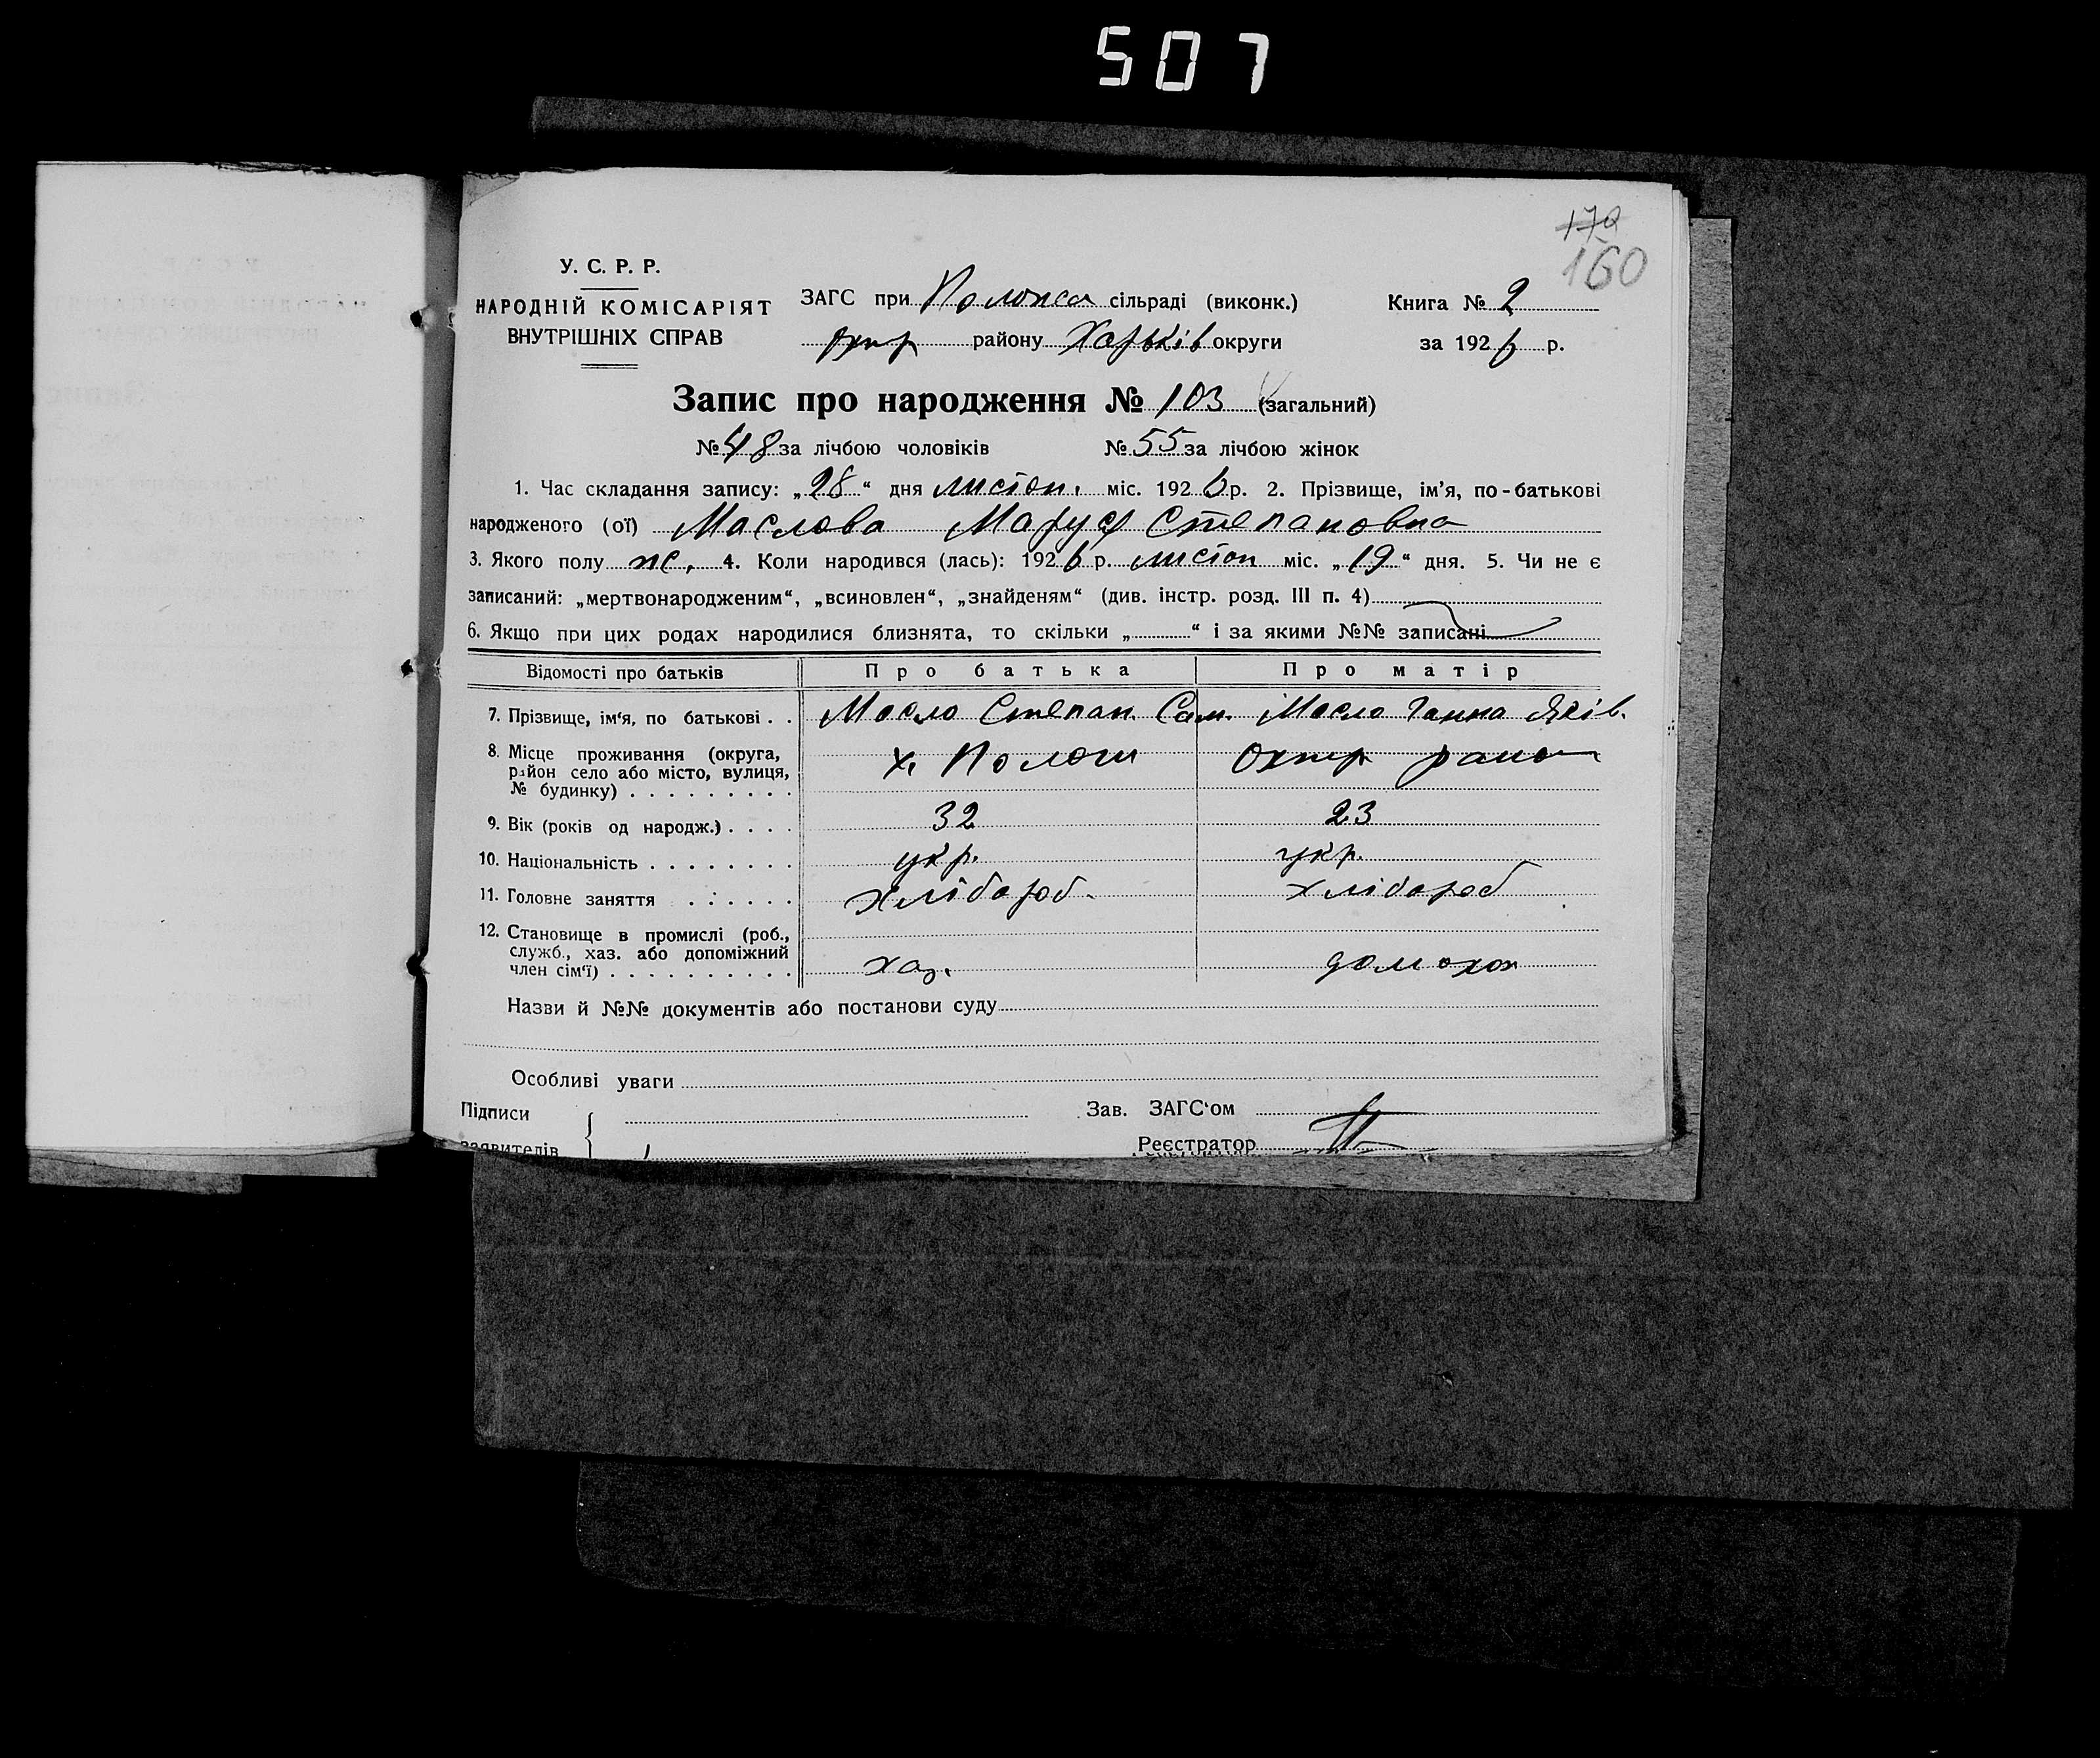 507
170
160
У. С. Р. Р.
НАРОДНІЙ КОМІСАРІЯТ
ВНУТРІШНІХ СПРАВ
ЗАГС при сільраді (виконк.)
району Харьків округи
Книга № 2
за 1926 р.
Запис про народження № 103 (загальний)
№ 48 за лічбою чоловіків № 55 за лічбою жінок
1. Час складання запису: „28“ дня листоп. міс. 1926 р. 2. Прізвище, ім’я, по-батькові
народженого (ої) Маслова Маруся Степановна
3. Якого полу ж. 4. Коли народився (лась): 1926 р. листоп міс. „19“ дня. 5. Чи не є
записаний: „мертвонародженим“, „всиновлен“, „знайденям“ (див. інстр. розд. III п. 4)
6. Якщо при цих родах народилися близнята, то скільки „ “ і за якими №№ записані
Відомості про батьків Про батька Про матір
7. Прізвище, ім‘я, по батькові . . Масло Степан Сам. Масло Ганна Яків.
8. Місце проживання (округа,
район село або місто, вулиця,
№ будинку) . . . . . . . . .
х. Пологи Охтир
9. Вік (років од народж.) . . . . 32 23
10. Національність . . . . . . . укр. укр.
11. Головне заняття . . . . . . хлібороб. хлібороб
12. Становище в промислі (роб.,
служб., хаз. або допоміжний
член сім‘ї) . . . . . . . . . . хаз. домохоз
Назви й №№ документів або постанови суду
Особливі уваги
Підписи
заявителів
Зав. ЗАГС‘ом
Реєстратор